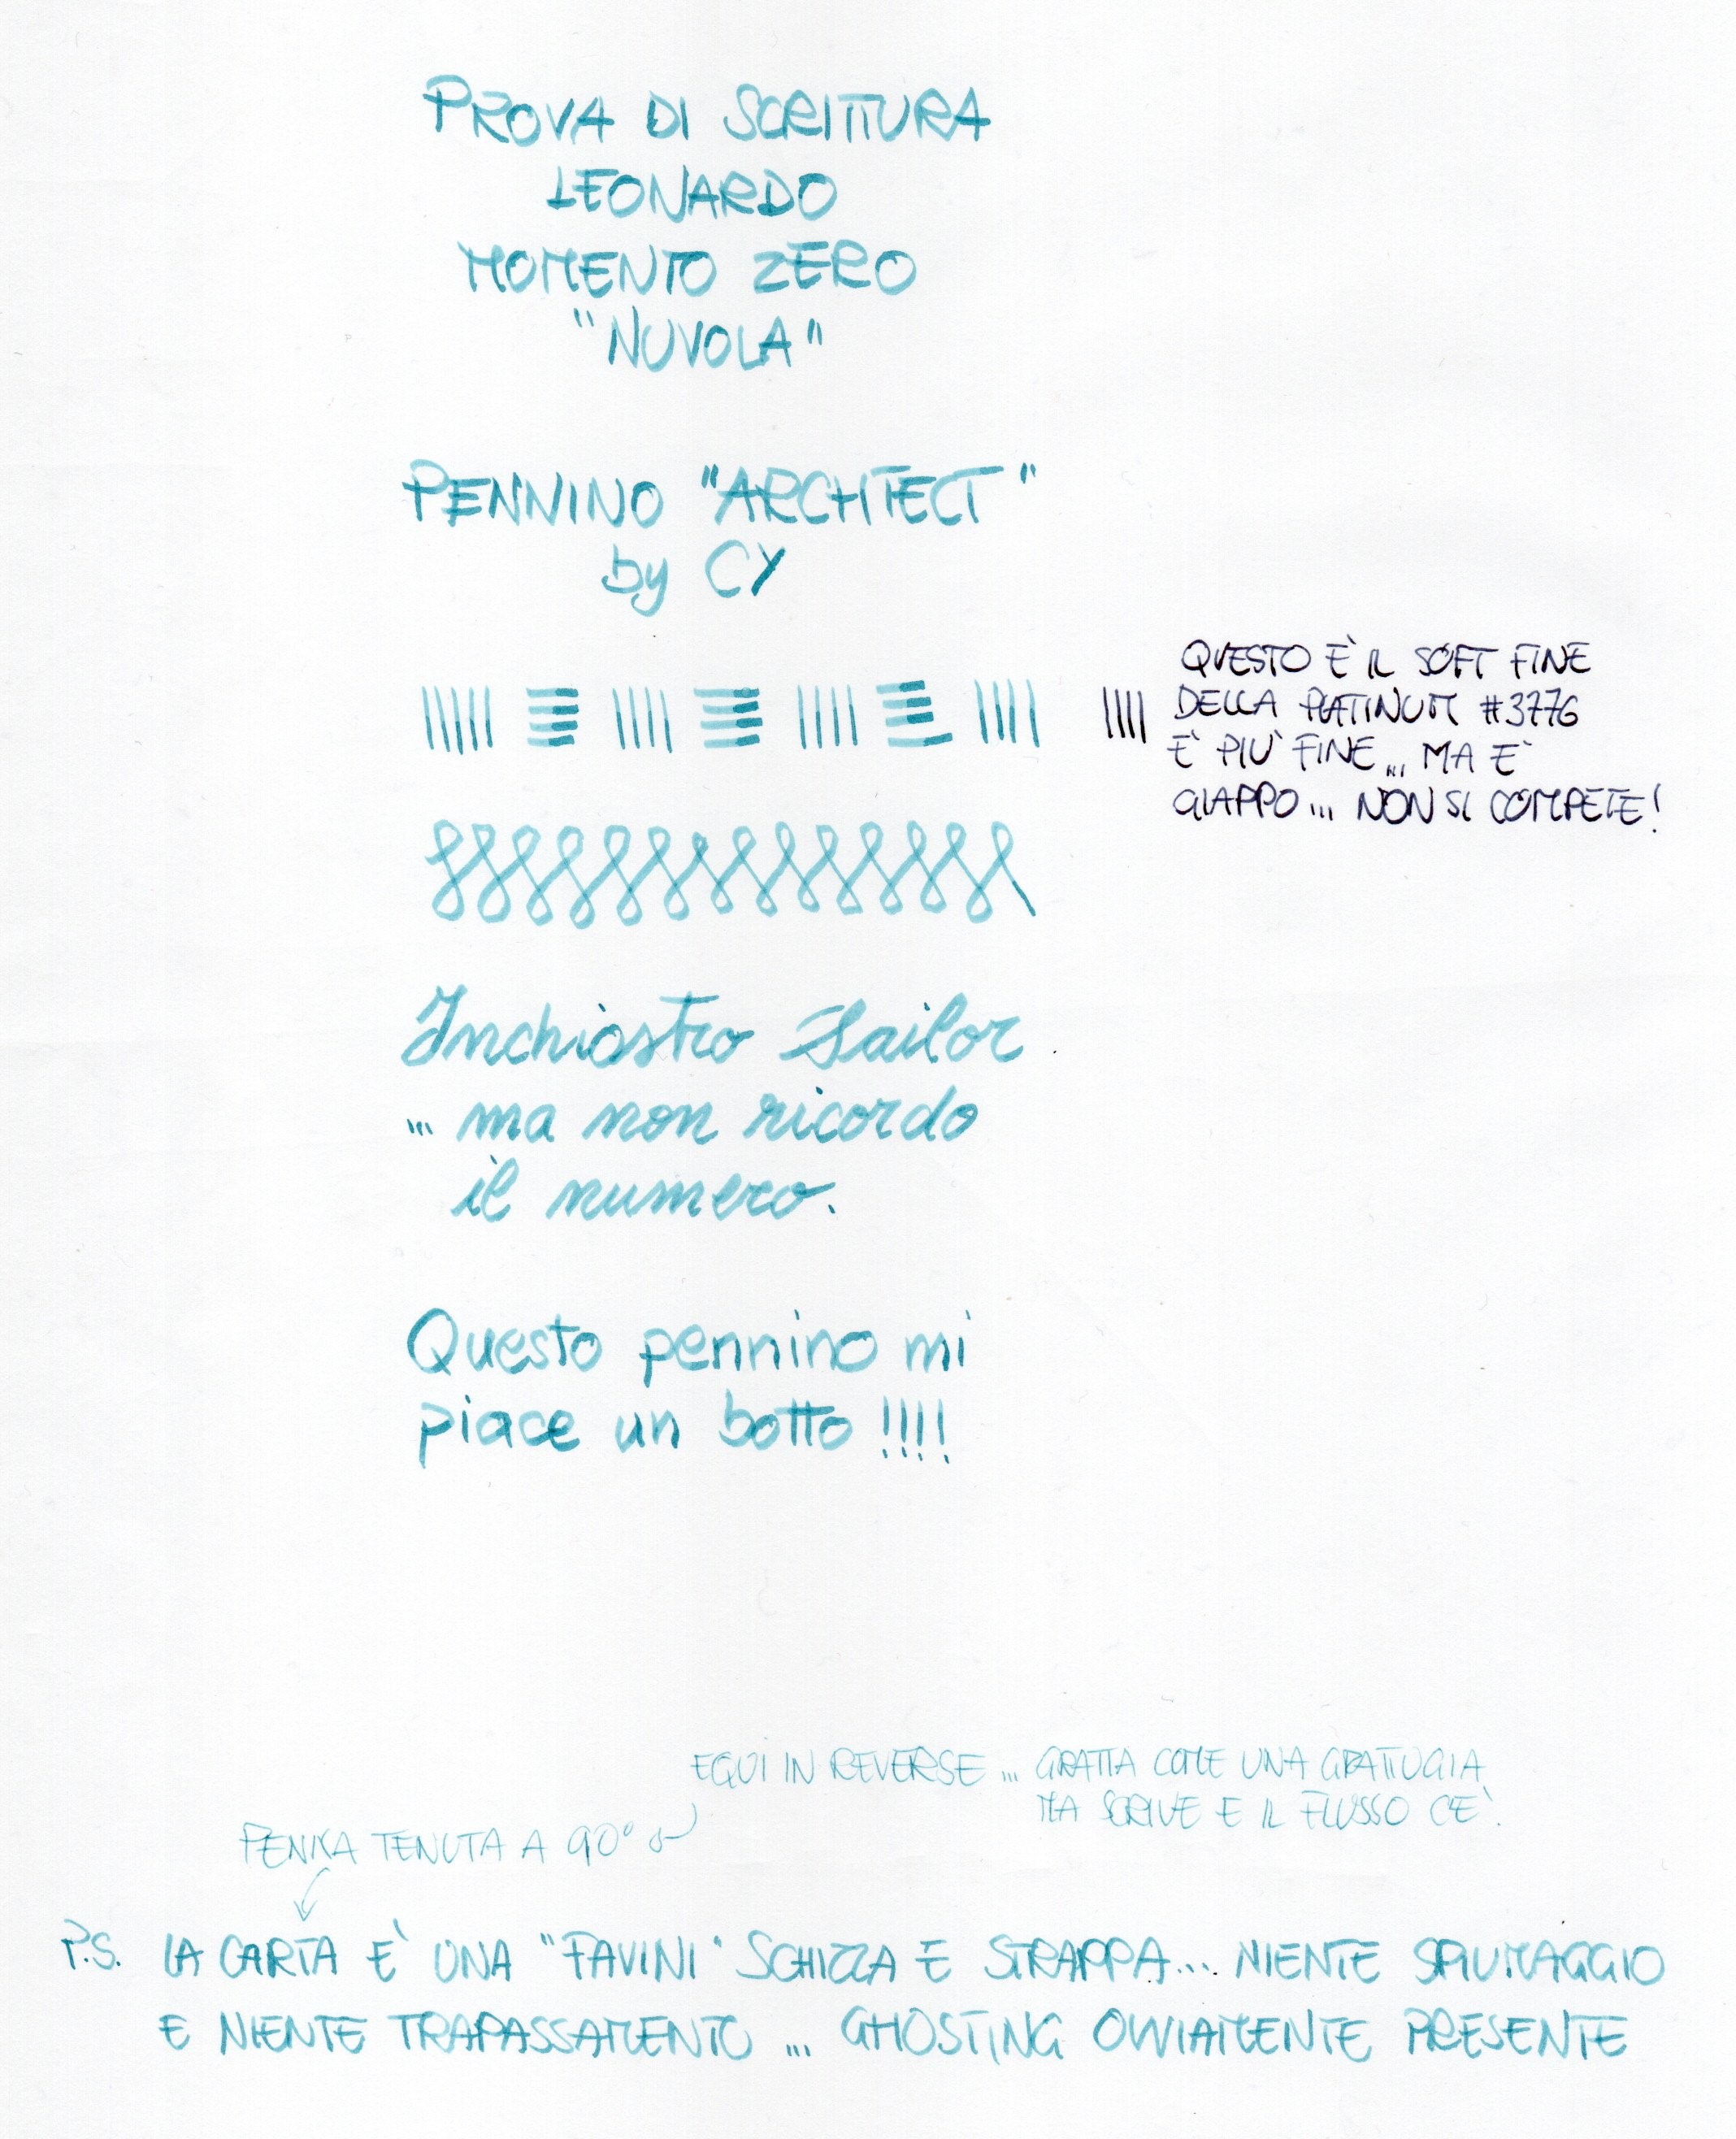 PROVA DI SCRITTURA
LEONARDO
MOMENTO ZERO
"NUVOLA"
PENNINO "ARCHITECT"
by CY
QUESTO È IL SOFT FINE
DELLA PLATINUM #3776
È PIÙ FINE... MA È
GIAPPO... NON SI COMPETE!
Inchiostro Sailor
... ma non ricordo
il numero.
Questo pennino mi
piace un botto !!!!
E QUI IN REVERSE... GRATTA COME UNA GRATTUGIA
MA SCRIVE E IL FLUSSO C'È.
PENNA TENUTA A 90°
P.S. LA CARTA È UNA "FAVINI" SCHIZZA E STRAPPA... NIENTE SPIUMAGGIO
E NIENTE TRAPASSAMENTO ... GHOSTING OVVIAMENTE PRESENTE